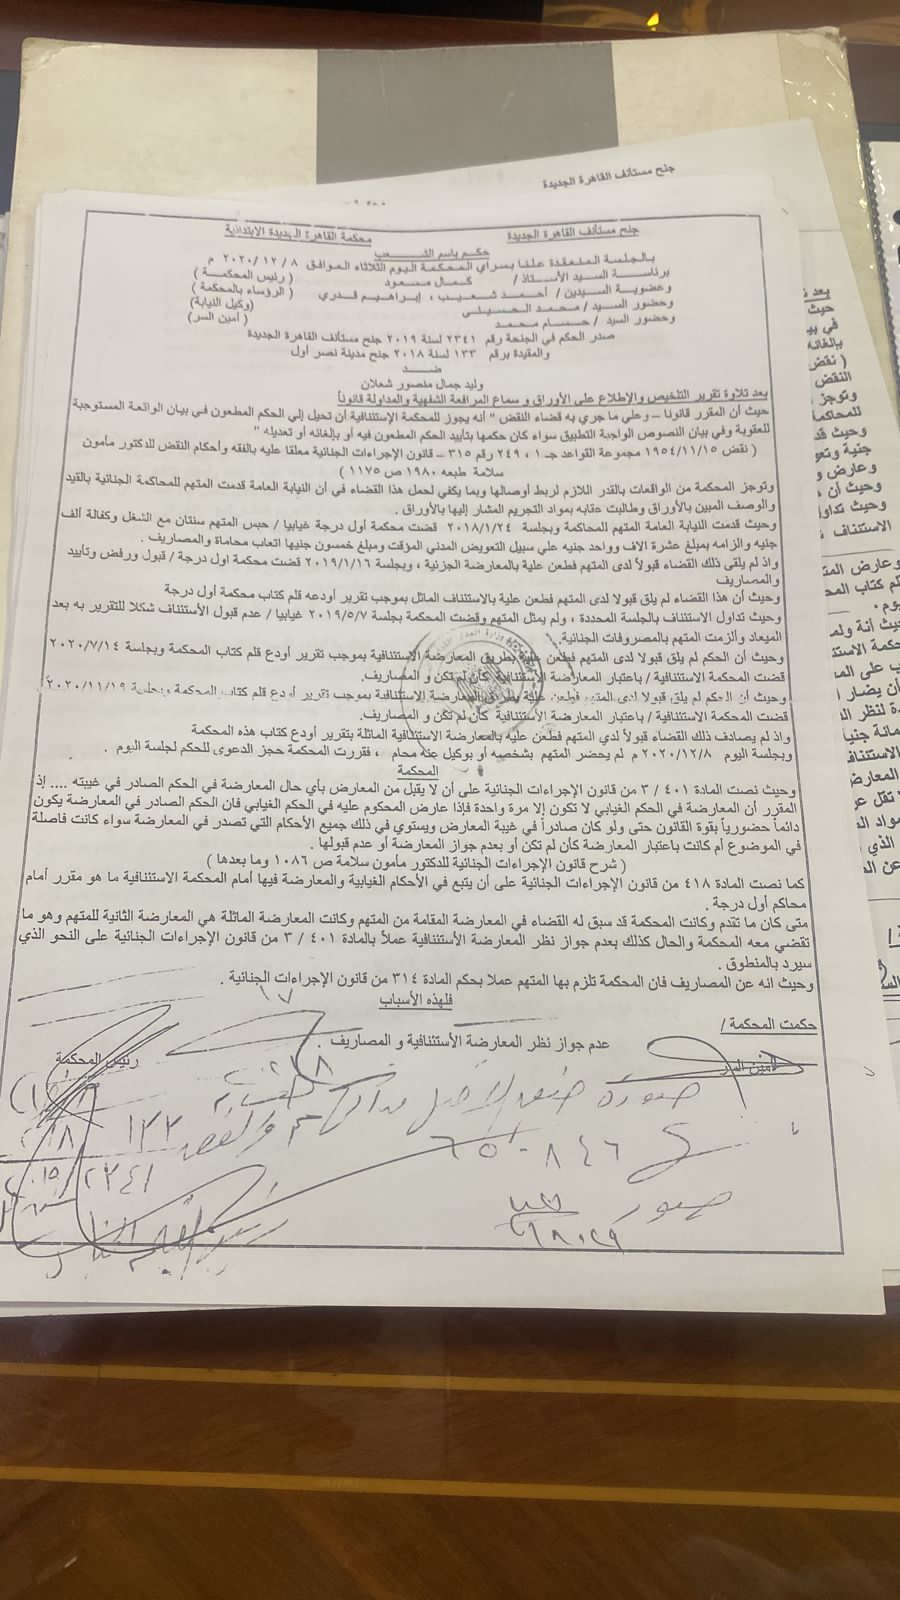 جنح مستأنف القاهرة الجديدة
جنح مستأنف القاهرة الجديدة
محكمة القاهرة الجديدة الابتدائية
حكم باسم الشعب
بالجلسة المنعقدة علنا بسراي المحكمة اليوم الثلاثاء الموافق ٨ / ١٢ / ٢٠٢٠ م
برئاسة السيد الأستاذ / كمال مسعود ( رئيس المحكمة )
وعضوية السيدين / أحمد شعيب ، إبراهيم قدري ( الرؤساء بالمحكمة )
وحضور السيد / محمد الحسيني (وكيل النيابة)
وحضور السيد / حسام محمد ( أمين السر)
صدر الحكم في الجنحة رقم ٢٣٤١ لسنة ٢٠١٩ جنح مستأنف القاهرة الجديدة
والمقيدة برقم ١٣٣ لسنة ٢٠١٨ جنح مدينة نصر أول
ضــد
وليد جمال منصور شعلان
بعد تلاوة تقرير التلخيص والإطلاع على الأوراق و سماع المرافعة الشفهية والمداولة قانوناً
حيث أن المقرر قانونا – وعلى ما جري به قضاء النقض " أنه يجوز للمحكمة الإستئنافية أن تحيل إلي الحكم المطعون في بيان الواقعة المستوجبة
للعقوبة وفي بيان النصوص الواجبة التطبيق سواء كان حكمها بتأييد الحكم المطعون فيه أو بإلغائه أو تعديله "
( نقض ١٩٥٤/١١/١٥ مجموعة القواعد جـ١ ، ٢٤٩ رقم ٣١٥ – قانون الإجراءات الجنائية معلقا عليه بالفقه وأحكام النقض للدكتور مأمون
سلامة طبعه ١٩٨٠ ص ١١٧٥ )
وتوجز المحكمة من الواقعات بالقدر اللازم لربط أوصالها وبما يكفي لحمل هذا القضاء في أن النيابة العامة قدمت المتهم للمحاكمة الجنائية بالقيد
والوصف المبين بالأوراق وطالبت عقابه بمواد التجريم المشار إليها بالأوراق .
وحيث قدمت النيابة العامة المتهم المحاكمة وبجلسة ٢٠١٨/١/٢٤ قضت محكمة أول درجة غيابيا / حبس المتهم سنتان مع الشغل وكفالة ألف
جنيه وإلزامه بمبلغ عشرة الاف وواحد جنيه علي سبيل التعويض المدني المؤقت ومبلغ خمسون جنيها اتعاب محاماة والمصاريف .
واذ لم يلقى ذلك القضاء قبولاً لدى المتهم فطعن علية بالمعارضة الجزنية ، وبجلسة ٢٠١٩/١/١٦ قضت محكمة اول درجة / قبول ورفض وتأييد
والمصاريف
وحيث أن هذا القضاء لم يلق قبولا لدى المتهم فطعن علية بالاستئناف الماثل بموجب تقرير أودعه قلم كتاب محكمة أول درجة
وحيث تداول الاستئناف بالجلسة المحددة ، ولم يمثل المتهم وقضت المحكمة بجلسة ٢٠١٩/٥/٧ غيابيا / عدم قبول الأستئناف شكلا للتقرير به بعد
الميعاد وألزمت المتهم بالمصروفات الجنائية.
وحيث أن الحكم لم يلق قبولا لدى المتهم فطعن علية بطريق المعارضة الاستئنافية بموجب تقرير أودع قلم كتاب المحكمة وبجلسة ٢٠٢٠/٧/١٤
قضت المحكمة الاستئنافية / باعتبار المعارضة الاستئنافية كأن لم تكن و المصاريف.
وحيث أن الحكم لم يلق قبولا لدى المتهم فطعن علية بطريق المعارضة الاستئنافية بموجب تقرير أودع قلم كتاب المحكمة وبجلسة ٢٠٢٠/١١/١٩
قضت المحكمة الاستئنافية / باعتبار المعارضة الاستئنافية كأن لم تكن و المصاريف.
واذ لم يصادف ذلك القضاء قبولاً لدي المتهم فطعن عليه بالمعارضة الاستئنافية الماثلة بتقرير أودع كتاب هذه المحكمة
وبجلسة اليوم ٢٠٢٠/١٢/٨ م لم يحضر المتهم بشخصه أو بوكيل عنه محام ، فقررت المحكمة حجز الدعوى للحكم لجلسة اليوم .
المحكمة
وحيث نصت المادة ٤٠١ / ٣ من قانون الإجراءات الجنائية على أن لا يقبل من المعارض بأي حال المعارضة في الحكم الصادر في غيبته .... إذ
المقرر أن المعارضة في الحكم الغيابي لا تكون إلا مرة واحدة فإذا عارض المحكوم عليه في الحكم الغيابي فان الحكم الصادر في المعارضة يكون
دائماً حضورياً بقوة القانون حتى ولو كان صادراً في غيبة المعارض ويستوي في ذلك جميع الأحكام التي تصدر في المعارضة سواء كانت فاصلة
في الموضوع أم كانت باعتبار المعارضة كأن لم تكن أو بعدم جواز المعارضة أو عدم قبولها .
( شرح قانون الإجراءات الجنائية للدكتور مأمون سلامة ص ١٠٨٦ وما بعدها )
كما نصت المادة ٤١٨ من قانون الإجراءات الجنائية على أن يتبع في الأحكام الغيابية والمعارضة فيها أمام المحكمة الاستئنافية ما هو مقرر أمام
محاكم أول درجة .
متى كان ما تقدم وكانت المحكمة قد سبق له القضاء في المعارضة المقامة من المتهم وكانت المعارضة الماثلة هي المعارضة الثانية للمتهم وهو ما
تقضي معه المحكمة والحال كذلك بعدم جواز نظر المعارضة الأستئنافية عملاً بالمادة ٤٠١ / ٣ من قانون الإجراءات الجنائية على النحو الذي
سيرد بالمنطوق .
وحيث انه عن المصاريف فان المحكمة تلزم بها المتهم عملا بحكم المادة ٣١٤ من قانون الإجراءات الجنائية .
فلهذه الأسباب
حكمت المحكمة /
عدم جواز نظر المعارضة الأستئنافية و المصاريف .
أمين السر
رئيس المحكمة
صورة طبق الأصل
١٣٣
٢٣٤١
٦٥٠٨٤٦